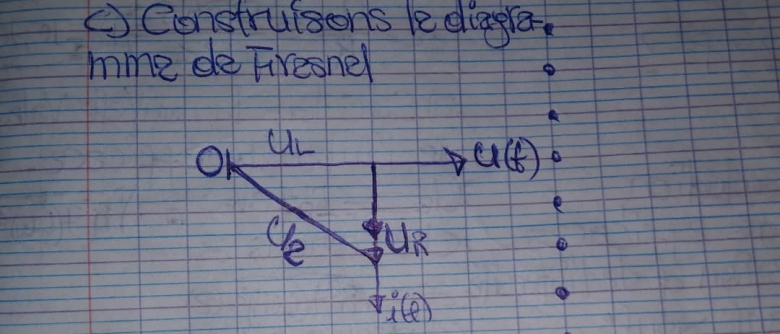 c) Construisons le diagra-
mme de Fresnel
O UL U(t)
UR
i(t)